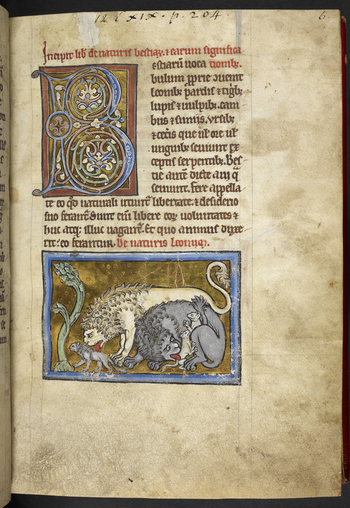 12 C XIX. p. 204
6
Incipit lib de naturis bestiaꝝ. ⁊ earum significa
tionib;
Bestiarū uoca
bulum ꝓprie ꝯuenit
leonib; pardis ⁊ tigrib;
lupis ⁊ uulpib;. cani
bus ⁊ simiis. ursib;
⁊ ceteris que uł ore uł
unguib; seuiunt ex
ceptis serpentib;. Bes
tie autē dicte a ui q̄
seuiunt. Fere appella
te eo qđ naturali utuntur libertate. ⁊ desiderio
suo ferant̉. Sunt enī libere eoꝝ uoluntates ⁊
huc atq; illuc uagantur. Et quo animus duxe
rit. eo ferantur. De naturis leonuꝝ.